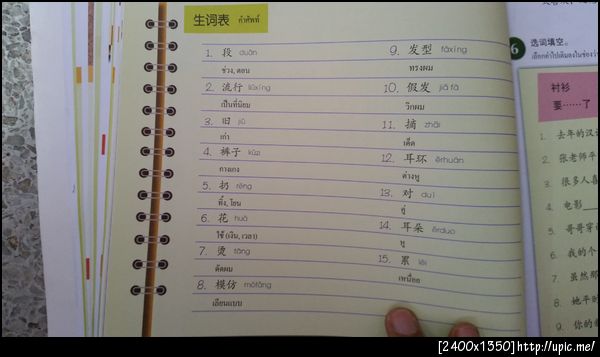 生词表 คำศัพท์
1. 段 duàn
ช่วง, ตอน
2. 流行 liúxíng
เป็นที่นิยม
3. 旧 jiù
เก่า
4. 裤子 kùzi
กางเกง
5. 扔 rēng
ทิ้ง, โยน
6. 花 huā
ใช้ (เงิน, เวลา)
7. 烫 tàng
ดัดผม
8. 模仿 mófǎng
เลียนแบบ
9. 发型 fàxíng
ทรงผม
10. 假发 jiǎfà
วิกผม
11. 摘 zhāi
เด็ด
12. 耳环 ěrhuán
ต่างหู
13. 对 duì
คู่
14. 耳朵 ěrduo
หู
15. 累 lèi
เหนื่อย
6 选词填空。
เลือกคำไปเติมลงในช่องว่าง
衬衫
要……了
1. 去年的汉
2. 张老师平
3. 很多人喜
4. 电影
5. 哥哥穿
6. 我的个
7. 虽然那
8. 她平时
9. 你的
[2400x1350]http://upic.me/